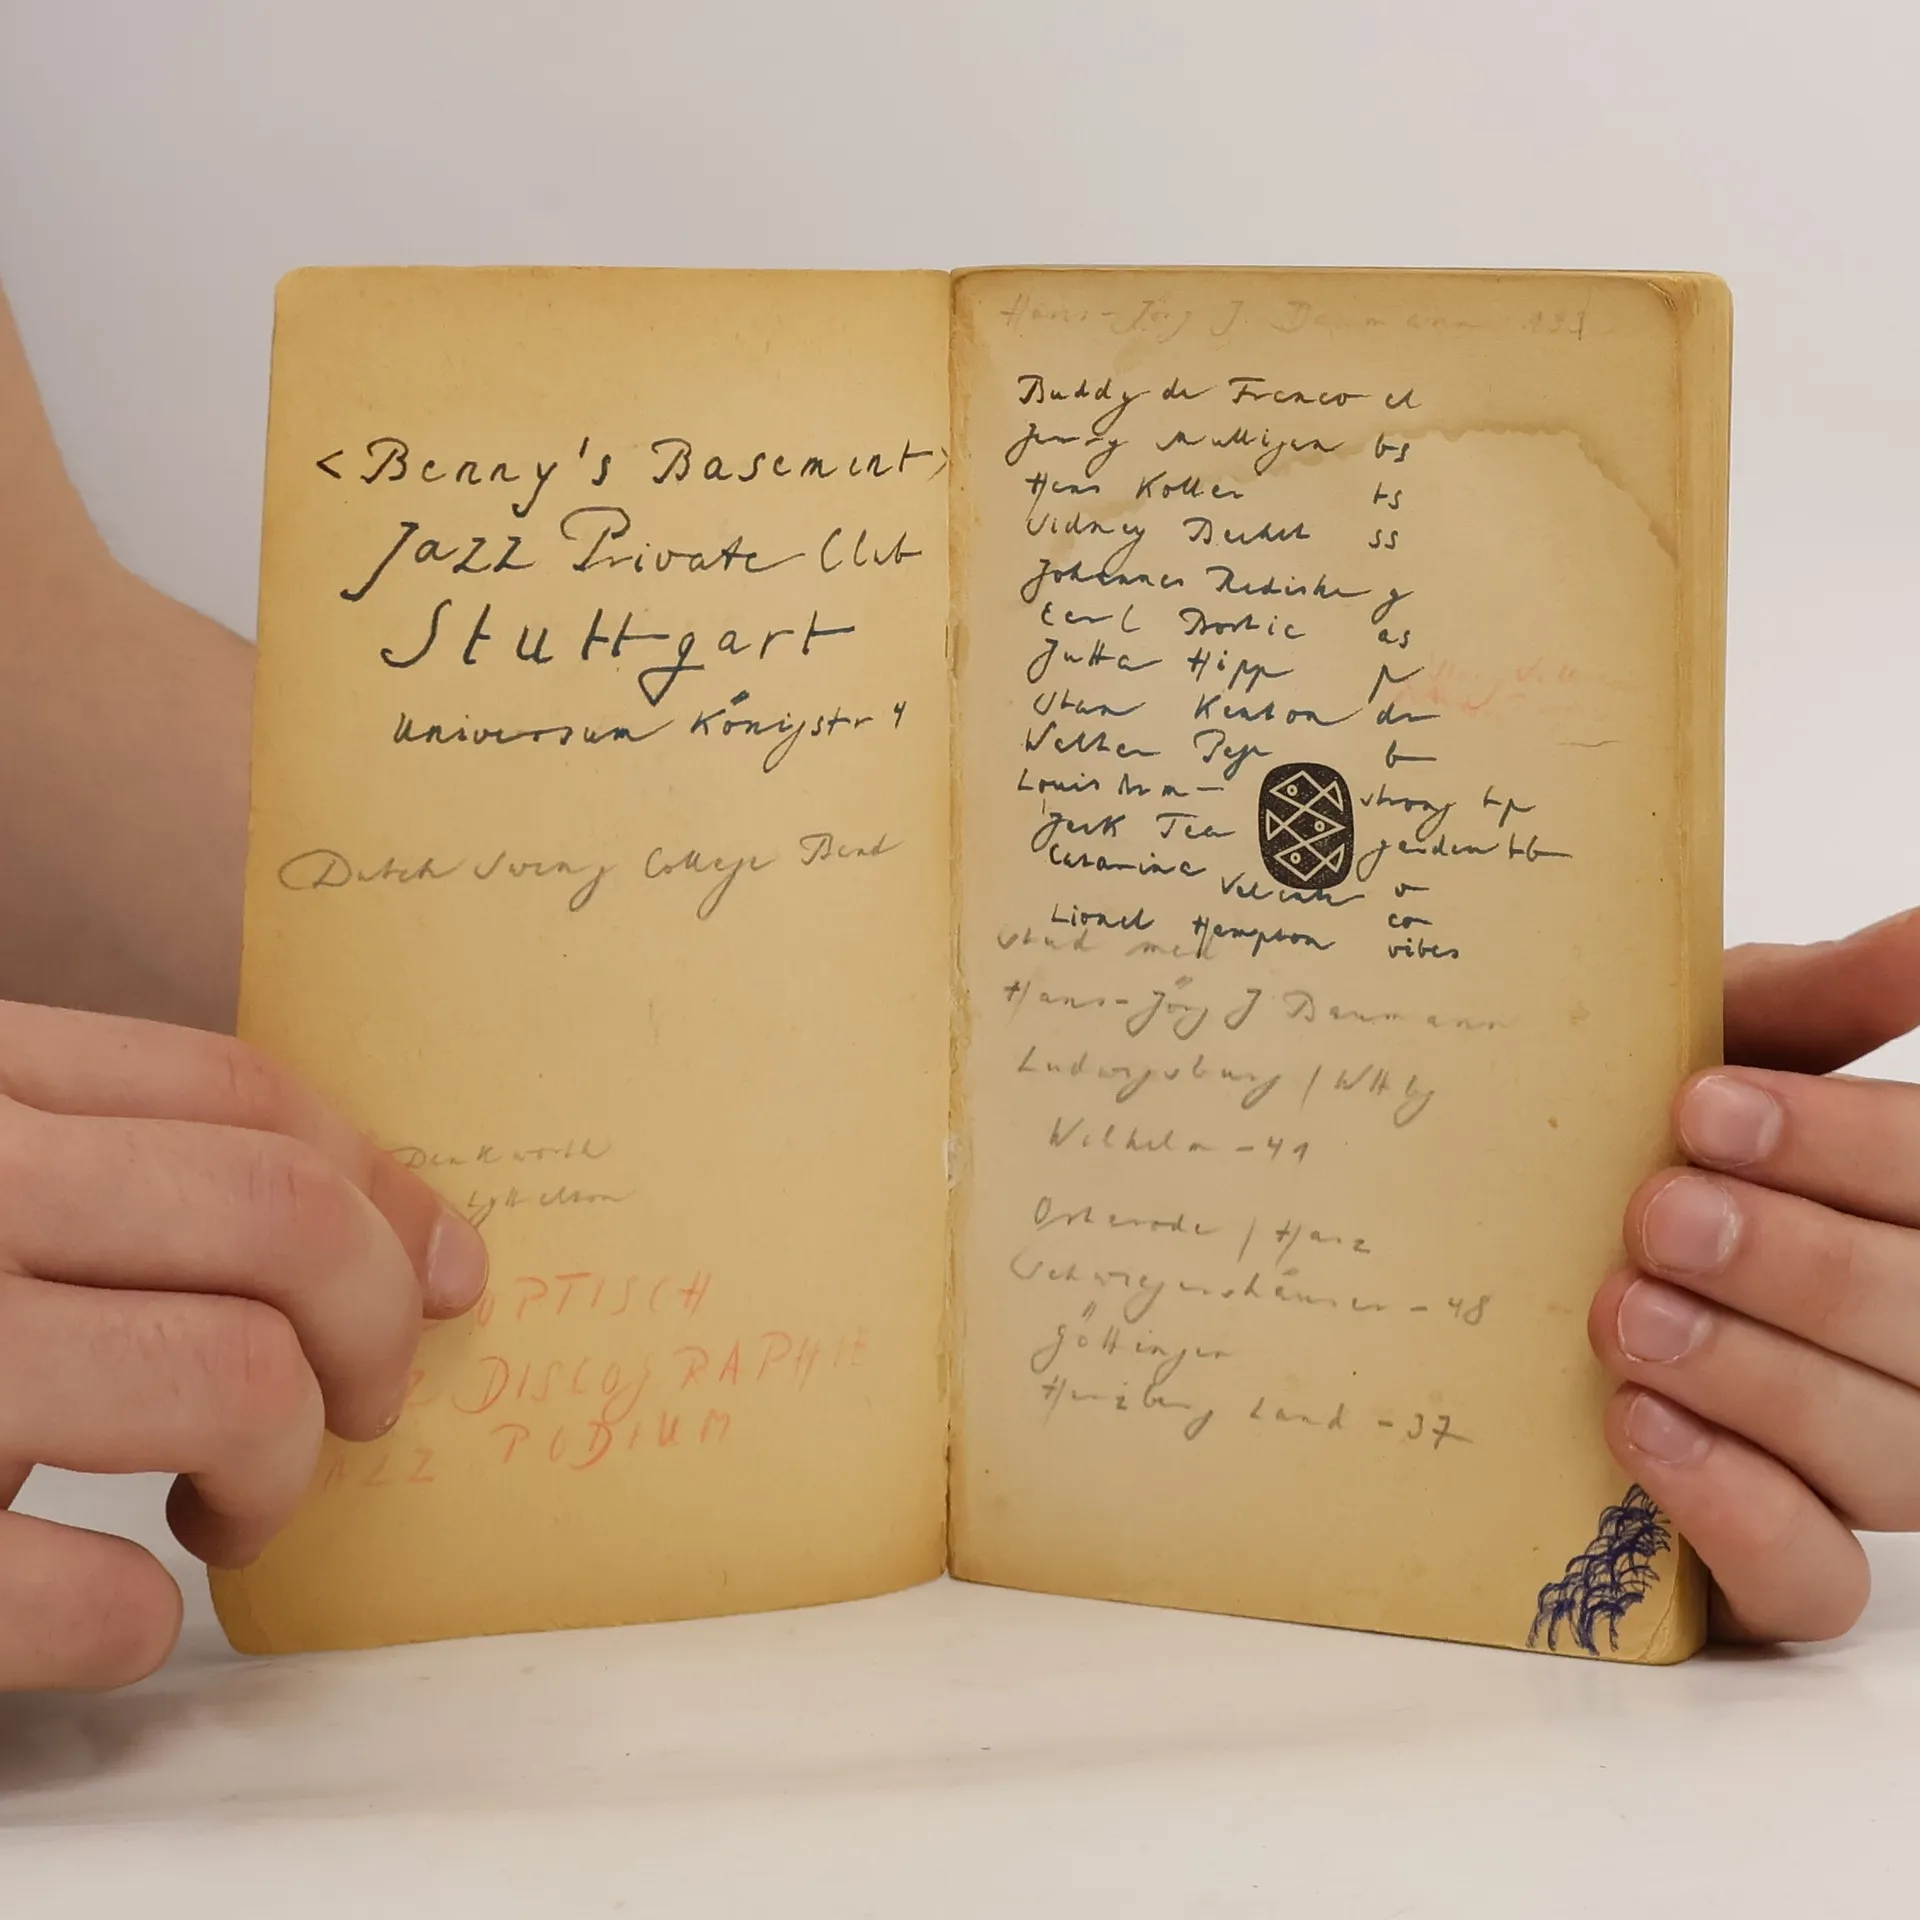 <Benny's Basement>
Jazz Private Club
Stuttgart
Universum Königstr 4
Dutch Swing College Band
Dankworth
Lyttelton
OPTISCH
Z DISCOGRAPHIE
AZZ PODIUM
Hans-Jörg J. Baumann
Buddy de Franco cl
Jerry Mulligan bs
Hans Koller ts
Sidney Bechet ss
Johannes Rediske g
Earl Bostic as
Jutta Hipp p
Stan Kenton dr
Walter Page b
Louis Arm- strong tp
Jack Tea garden tb
Catarina Valente v
co
Lionel Hampton vibes
stud med
Hans-Jörg J Baumann
Ludwigsburg / WHbg
Wilhelm - 41
Osterode / Harz
Schwiegershäuser - 48
Göttingen
Herzberg Land - 37